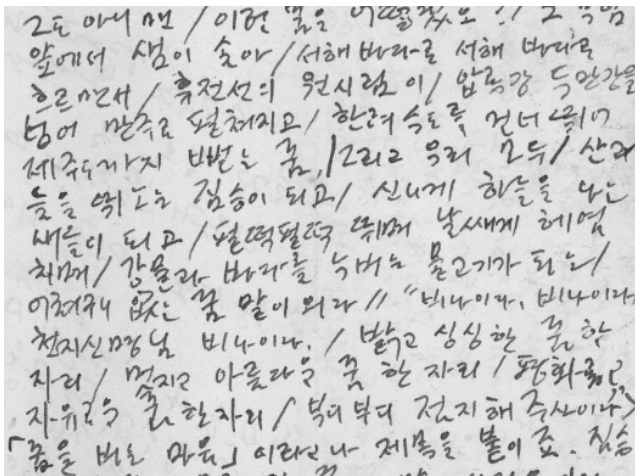 그도 아니면 / 이런 꿈은 어떻겠소 ?/ 그 무덤
앞에서 샘이 솟아 / 서해 바다로 서해 바다로
흐르면서 / 휴전선의 원시림이 / 압록강 두만강을
넘어 만주로 펼쳐지고 / 한려수도를 건너뛰어
제주도까지 뻗는 꿈, / 그리고 우리 모두 / 산과
들을 뛰노는 짐승이 되고 / 신나게 하늘을 나는
새들이 되고 / 펄떡펄떡 뛰며 날쌔게 헤엄
치며 / 강물과 바다를 누비는 물고기가 되는 /
없는 꿈 말이외다 // "비나이다, 비나이다
천지신명님 비나이다. / 밝고 싱싱한 꿈 한
자리 / 멋지고 아름다운 꿈 한 자리 / 평화롭고
자유로운 꿈 한자리 / 부디부디 점지해 주사이다>
「꿈을 비는 마음」 이라고나 제목을 붙이죠. 짐승